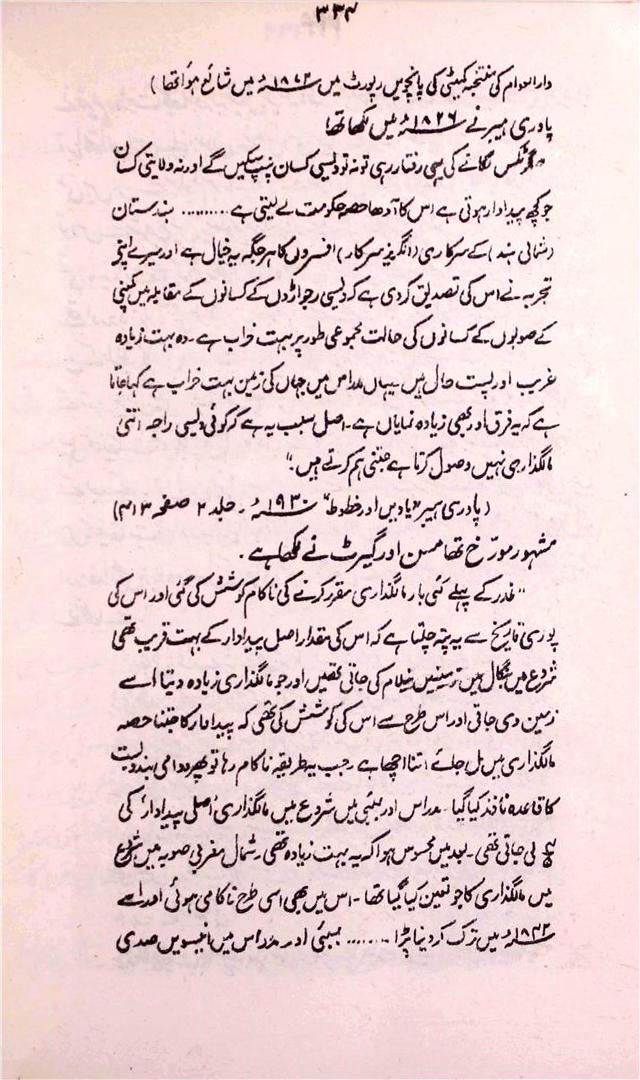 ۳۳۴
دارالعوام کی منتخبہ کمیٹی کی پانچویں رپورٹ میں ۱۸۷۲ء میں شائع ہوا تھا)
پادری ہیبر نے ۱۸۲۶ء میں لکھا تھا
"اگر ٹکس لگانے کی یہی رفتار رہی تو نہ تو دیسی کسان پنپ سکیں گے اور نہ ولایتی کسان
جو کچھ پیداوار ہوتی ہے اس کا آدھا حصہ حکومت لے لیتی ہے ......... ہندستان
(شمالی ہند) کے سرکاری (انگریز سرکار) افسروں کا ہر جگہ یہ خیال ہے اور میرے اپنے
تجربہ نے اس کی تصدیق کر دی ہے کہ دیسی رجواڑوں کے کسانوں کے مقابلہ میں کمپنی
کے صوبوں کے کسانوں کی حالت مجموعی طور پر بہت خراب ہے۔ وہ بہت زیادہ
غریب اور پست حال ہیں۔ یہاں مدراس میں جہاں کی زمین بہت خراب ہے کہا جاتا
ہے کہ یہ فرق اور بھی زیادہ نمایاں ہے۔ اصل سبب یہ ہے کہ کوئی دیسی راجہ اتنی
مالگذاری نہیں وصول کرتا ہے جتنی ہم کرتے ہیں۔"
(پادری ہیبر "یادیں اور خطوط" ۱۹۳۰ء۔ جلد ۲ صفحہ ۴۱۳)
مشہور مورّخ تھامسن اور گیرٹ نے لکھا ہے۔
"غدر کے پہلے کئی بار مالگذاری مقرر کرنے کی ناکام کوشش کی گئی اور اس کی
پوری تاریخ سے یہ پتہ چلتا ہے کہ اس کی مقدار اصل پیداوار کے بہت قریب تھی
شروع میں بنگال میں زمینیں نیلام کی جاتی تھیں اور جو مالگذاری زیادہ دیتا اسے
زمین دی جاتی اور اس طرح سے اس کی کوشش کی تھی کہ پیداوار کا جتنا حصہ
مالگذاری میں مل جائے اتنا اچھا ہے۔ جب یہ طریقہ ناکام رہا تو پھر دوامی بندوبست
کا قاعدہ نافذ کیا گیا۔ مدراس اور بمبئی میں شروع میں مالگذاری اصلی پیداوار کی
لی جاتی تھی۔ بعد میں محسوس ہوا کہ یہ بہت زیادہ تھی۔ شمال مغربی صوبہ میں شروع
میں مالگذاری کا جو تعین کیا گیا تھا۔ اس میں بھی اسی طرح ناکامی ہوئی اور اسے
۱۸۴۲ء میں ترک کر دینا پڑا ........ بمبئی اور مدراس میں انیسویں صدی